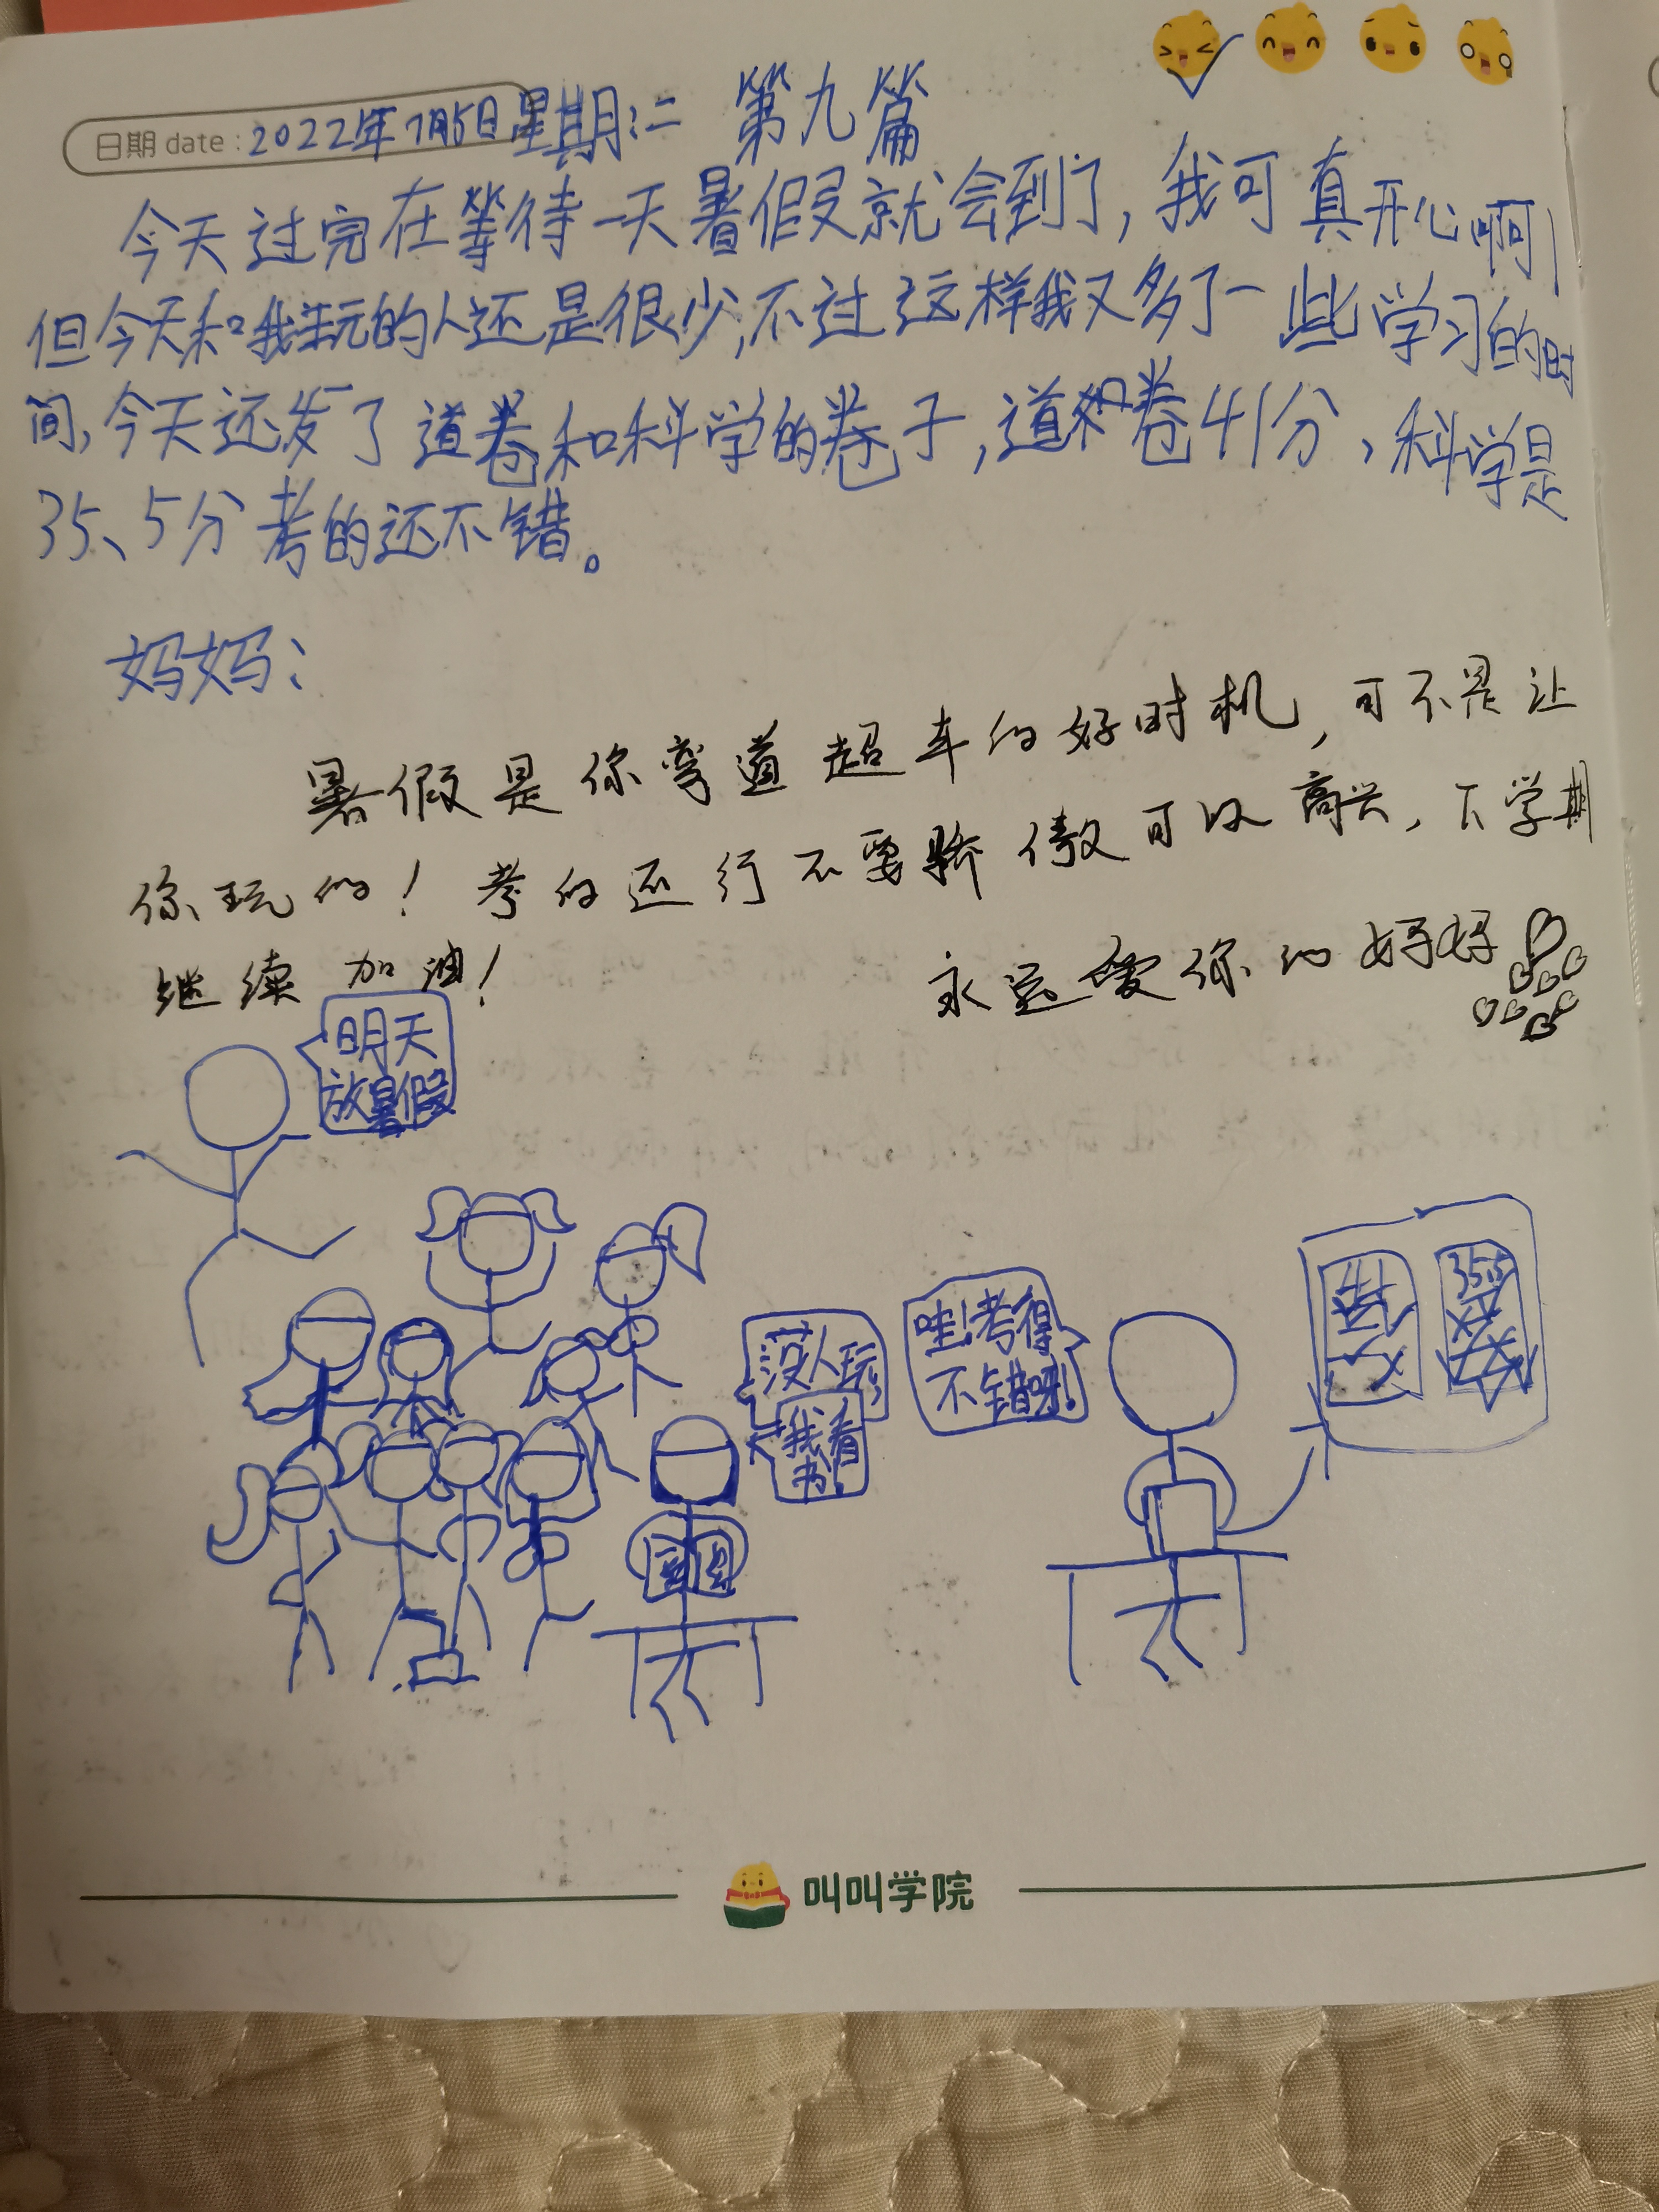 日期 date：2022年7月5日星期:二 第九篇
今天过完在等待一天暑假就会到了，我可真开心啊！
但今天和我玩的人还是很少，不过这样我又多了一些学习的时
间，今天还发了道卷和科学的卷子，道卷41分，科学是
35、5分考的还不错。
妈妈：
暑假是你弯道超车的好时机，可不是让
你玩的！考的还行不要骄傲可以高兴，下学期
继续加油！
永远爱你的妈妈
明天
放暑假
没人玩，
我看
书！
哇！考得
不错呀！
41
35.5
叫叫学院